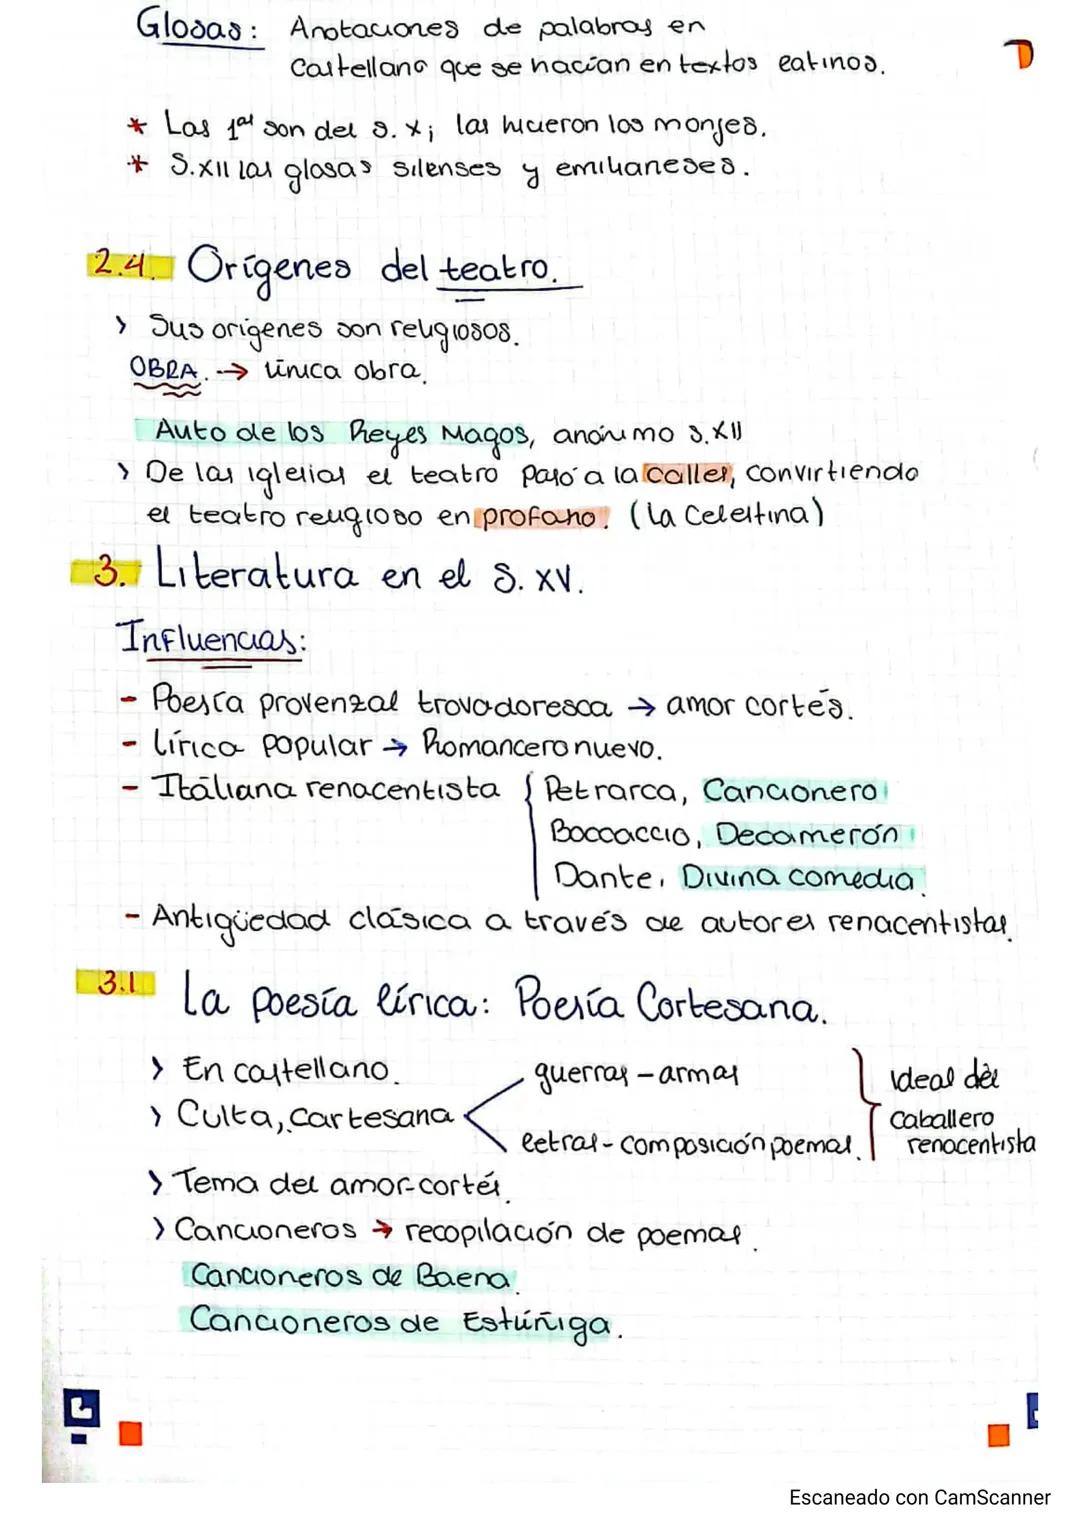 Glosas: Anotaciones de palabras en
castellano que se hacían en textos latinos.
* Las 1as son del s. X; las hicieron los monjes.
* S.XII las glosas silenses y emilianeses.
2.4. Orígenes del teatro.
> Sus orígenes son religiosos.
OBRA. → única obra.
Auto de los Reyes Magos, anónimo s.XII
> De las iglesias el teatro pasó a la calles, convirtiendo
el teatro religioso en profano. (La Celestina)
3. Literatura en el S. XV.
Influencias:
- Poesía provenzal trovadoresca → amor cortés.
- Lírica popular → Romancero nuevo.
- Italiana renacentista { Petrarca, Cancionero
Boccaccio, Decamerón
Dante, Divina comedia.
- Antigüedad clásica a través de autores renacentistas.
3.1 La poesía lírica: Poesía Cortesana.
> En castellano.
> Culta, cartesana < guerras - armas
letras - composición poemas. } ideal del
caballero
renacentista
> Tema del amor-cortés.
> Cancioneros → recopilación de poemas.
Cancioneros de Baena
Cancioneros de Estúñiga.
Escaneado con CamScanner